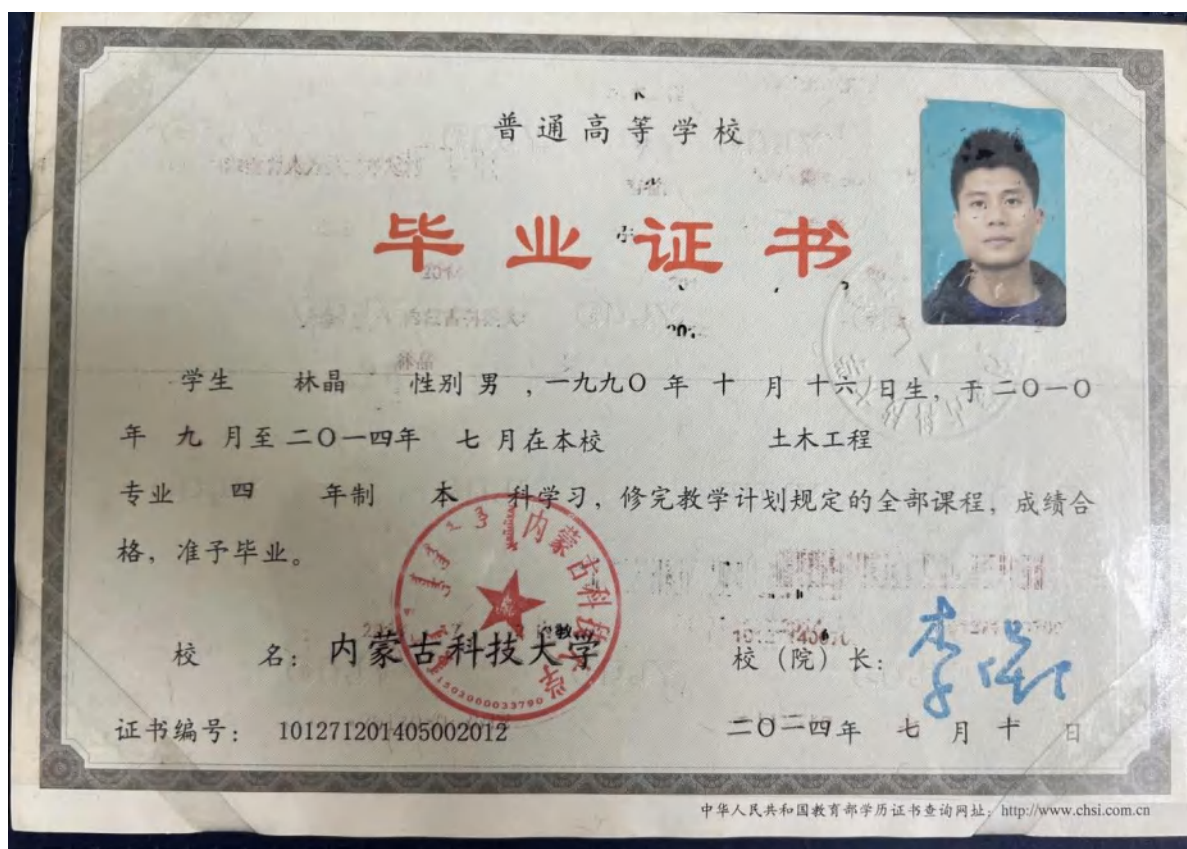 普通高等学校
毕业证书
学生 林晶 性别 男 ，一九九〇 年 十 月 十六 日生，于 二〇一〇
年 九 月至 二〇一四年 七 月在本校 土木工程
专业 四 年制 本 科学习，修完教学计划规定的全部课程，成绩合
格，准予毕业。
内蒙古科技大学
1502060033790
校 名：内蒙古科技大学 校（院）长：
证书编号： 101271201405002012 二〇一四年 七 月 十 日
中华人民共和国教育部学历证书查询网址：http://www.chsi.com.cn